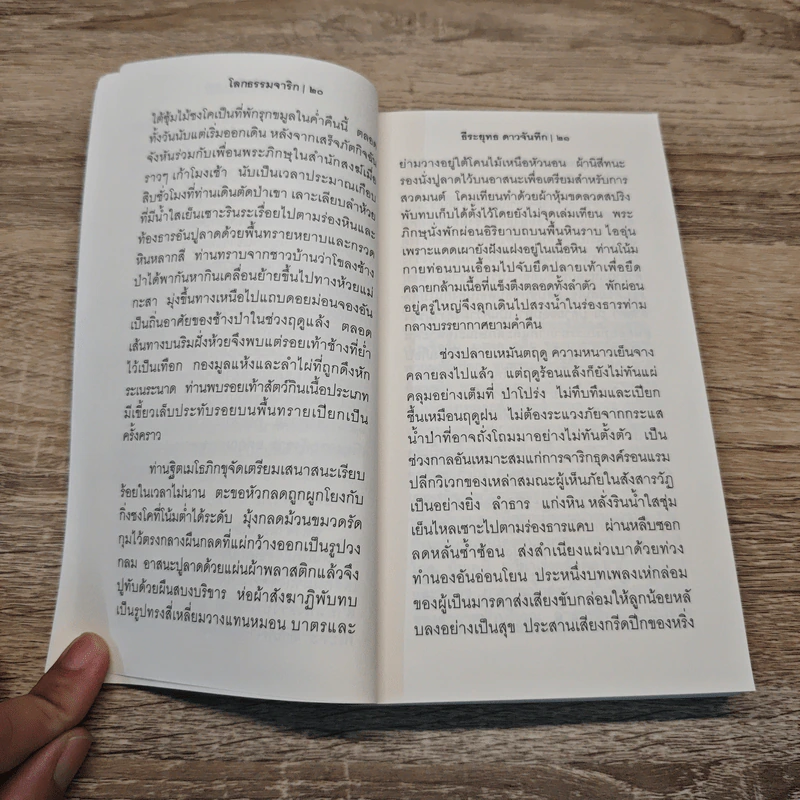 โลกธรรมจาริก | ๒๐
ใต้ซุ้มไม้ชงโคเป็นที่พักรุกขมูลในค่ำคืนนี้ ตลอด
ทั้งวันนับแต่เริ่มออกเดิน หลังจากเสร็จภัตกิจฉัน
จังหันร่วมกับเพื่อนพระภิกษุในสำนักสงฆ์เมื่อ
ราวๆ เก้าโมงเช้า นับเป็นเวลาประมาณเกือบ
สิบชั่วโมงที่ท่านเดินตัดป่าเขา เลาะเลียบลำห้วย
ที่มีน้ำใสเย็นเซาะรินระเรื่อยไปตามร่องหินและ
ท้องธารอันปูลาดด้วยพื้นทรายหยาบและกรวด
หินหลากสี ท่านทราบจากชาวบ้านว่าโขลงช้าง
ป่าได้พากันหากินเคลื่อนย้ายขึ้นไปทางห้วยแม่
กะสา มุ่งขึ้นทางเหนือไปแถบดอยม่อนจองอัน
เป็นถิ่นอาศัยของช้างป่าในช่วงฤดูแล้ง ตลอด
เส้นทางบนริมฝั่งห้วยจึงพบแต่รอยเท้าช้างที่ย่ำ
ไว้เป็นเทือก กองมูลแห้งและลำไผ่ที่ถูกดึงหัก
ระเนระนาด ท่านพบรอยเท้าสัตว์กินเนื้อประเภท
มีเขี้ยวเล็บประทับรอยบนพื้นทรายเปียกเป็น
ครั้งคราว
ท่านฐิตเมโธภิกขุจัดเตรียมเสนาสนะเรียบ
ร้อยในเวลาไม่นาน ตะขอหัวกลดถูกผูกโยงกับ
กิ่งชงโคที่โน้มต่ำได้ระดับ มุ้งกลดม้วนขมวดรัด
กุมไว้ตรงกลางผืนกลดที่แผ่กว้างออกเป็นรูปวง
กลม อาสนะปูลาดด้วยแผ่นผ้าพลาสติกแล้วจึง
ปูทับด้วยผืนสบงบริขาร ห่อผ้าสังฆาฏิพับทบ
เป็นรูปทรงสี่เหลี่ยมวางแทนหมอน บาตรและ
ธีระยุทธ ดาวจันทึก | ๒๑
ย่ามวางอยู่ใต้โคนไม้เหนือหัวนอน ผ้านิสีทนะ
รองนั่งปูลาดไว้บนอาสนะเพื่อเตรียมสำหรับการ
สวดมนต์ โคมเทียนทำด้วยผ้าหุ้มขดลวดสปริง
พับทบเก็บได้ตั้งไว้โดยยังไม่จุดเล่มเทียน พระ
ภิกษุนั่งพักผ่อนอิริยาบถบนพื้นหินราบ ไออุ่น
เพราะแดดเผายังฝังแฝงอยู่ในเนื้อหิน ท่านโน้ม
กายท่อนบนเอื้อมไปจับยึดปลายเท้าเพื่อยืด
คลายกล้ามเนื้อที่แข็งตึงตลอดทั้งลำตัว พักผ่อน
อยู่ครู่ใหญ่จึงลุกเดินไปสรงน้ำในร่องธารท่าม
กลางบรรยากาศยามค่ำคืน
ช่วงปลายเหมันตฤดู ความหนาวเย็นจาง
คลายลงไปแล้ว แต่ฤดูร้อนแล้งก็ยังไม่ทันแผ่
คลุมอย่างเต็มที่ ป่าโปร่ง ไม่ทึบทึมและเปียก
ชื้นเหมือนฤดูฝน ไม่ต้องระแวงภัยจากกระแส
น้ำป่าที่อาจถั่งโถมมาอย่างไม่ทันตั้งตัว เป็น
ช่วงกาลอันเหมาะสมแก่การจาริกธุดงค์รอนแรม
ปลีกวิเวกของเหล่าสมณะผู้เห็นภัยในสังสารวัฏ
เป็นอย่างยิ่ง ลำธาร แก่งหิน หลั่งรินน้ำใสชุ่ม
เย็นไหลเซาะไปตามร่องธารแคบ ผ่านหลืบซอก
ลดหลั่นซ้ำซ้อน ส่งสำเนียงแผ่วเบาด้วยท่วง
ทำนองอันอ่อนโยน ประหนึ่งบทเพลงเห่กล่อม
ของผู้เป็นมารดาส่งเสียงขับกล่อมให้ลูกน้อยหลั
บลงอย่างเป็นสุข ประสานเสียงกรีดปีกของหริ่ง